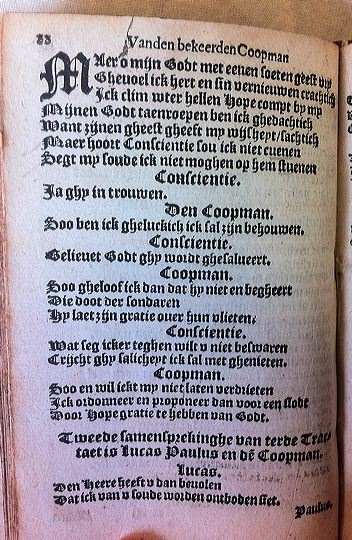 88 Vanden bekeerden Coopman
MAer o mijn Godt met eenen soeten geest vrp
Gheuoel ick hert en sin vernieuwen crachtich
Ick clim wter hellen Hope compt by mp
Mijnen Godt taenroepen ben ick ghedachtich
Want zijnen gheest gheeft mp wijsheyt sachtich
Maer hoort Conscientie sou ick niet cuenen
Segt mp soude ick niet moghen op hem stuenen
Conscientie.
Ja ghy in trouwen.
Den Coopman.
Soo ben ick gheluckich ick sal zijn behouwen.
Conscientie.
Gelieuet Godt ghy wordt ghesalueert.
Coopman.
Soo gheloof ick dan dat hy niet en begheert
Die doot der sondaren
Hy laet zijn gratie ouer hun vlieten.
Conscientie.
Wat seg icker teghen wilt v niet beswaren
Crijcht ghy salicheyt ick sal met ghenieten.
Coopman.
Soo en wil ickt mp niet laten verdrieten
Ick ordonneer en proponeer dan voor een slodt
Door Hope gratie te hebben van Godt.
Tweede samensprekinghe van terde Trac-
taet is Lucas Paulus en dē Coopman.
Lucas.
Den Heere heeft v dan beuolen
Dat ick van v soude worden ontboden siet.
Paulus.